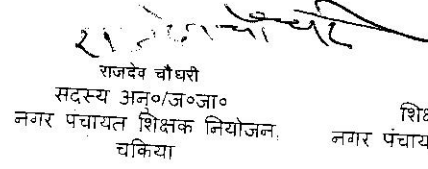 राजदेव चौधरी
सदस्य अनु०/ज०जा०
नगर पंचायत शिक्षक नियोजन,
चकिया
नगर पंचाय